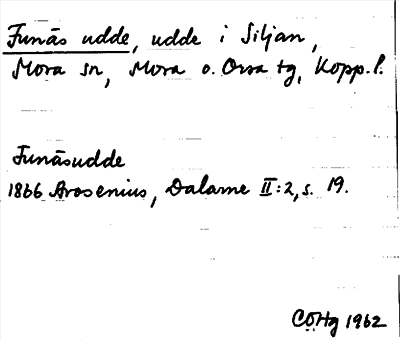 Funäs udde, udde i Siljan,
Mora sn, Mora o. Orsa tg, Kopp. l.
Funäsudde
1866 Arosenius, Dalarne II:2, s. 19.
CÖHg 1962